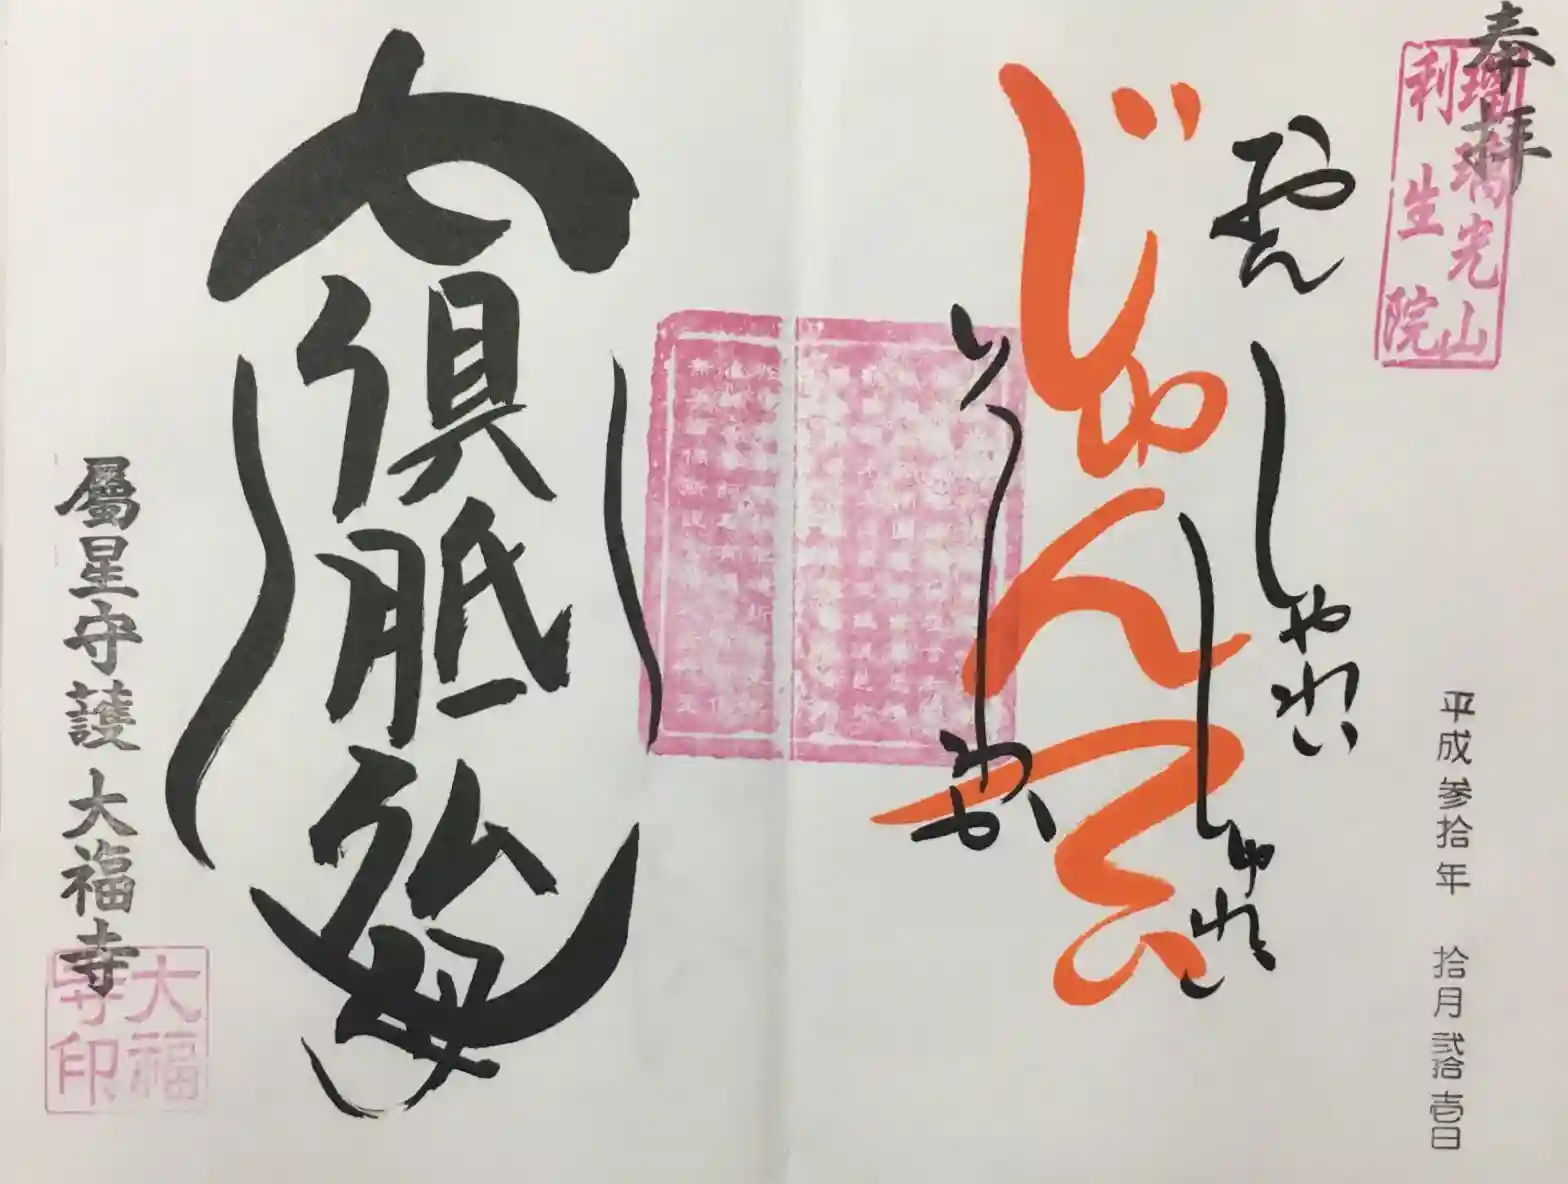 奉拝
瑠璃光山
利生院
平成参拾年 拾月弐拾壱日
おん しゃれい
しゅれい
じゅんてい
そわか
七俱胝佛母
屬星守護 大福寺
大福
寺印